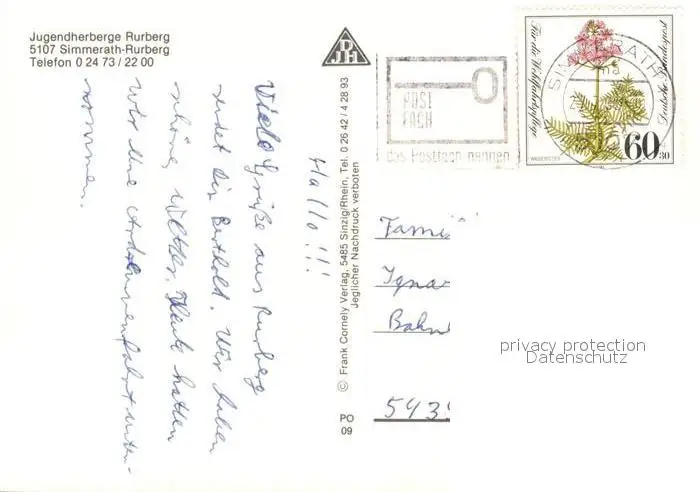 Jugendherberge Rurberg
5107 Simmerath-Rurberg
Telefon 0 24 73 / 22 00
Hallo!!!
Viele Grüße aus Rurberg
sendet dir Berthold. Wir haben
schönes Wetter. Heute hatten
wir eine Ardennenfahrt unter-
nommen.
© Frank Cornely Verlag, 5485 Sinzig/Rhein, Tel. 0 26 42 / 4 28 93
Jeglicher Nachdruck verboten
PO
09
JPH
POST
FACH
das Postfach nennen
SIMMERATH
Für die Wohlfahrtspflege
Deutsche Bundespost
60
+30
Fami
Igna
Bahn
543
privacy protection
Datenschutz